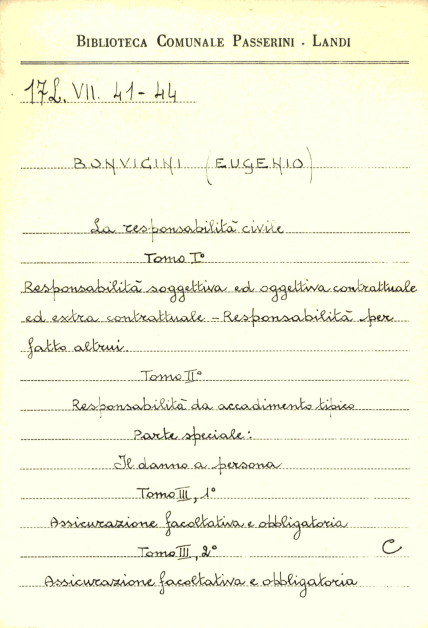 BIBLIOTECA COMUNALE PASSERINI - LANDI
17L. VII. 41-44
BONVICINI (EUGENIO)
La responsabilità civile
Tomo I°
Responsabilità soggettiva ed oggettiva contrattuale
ed extra contrattuale - Responsabilità per
fatto altrui.
Tomo II°
Responsabilità da accadimento tipico
Parte speciale:
Il danno a persona
Tomo III, 1°
Assicurazione facoltativa e obbligatoria
Tomo III, 2°
C
Assicurazione facoltativa e obbligatoria